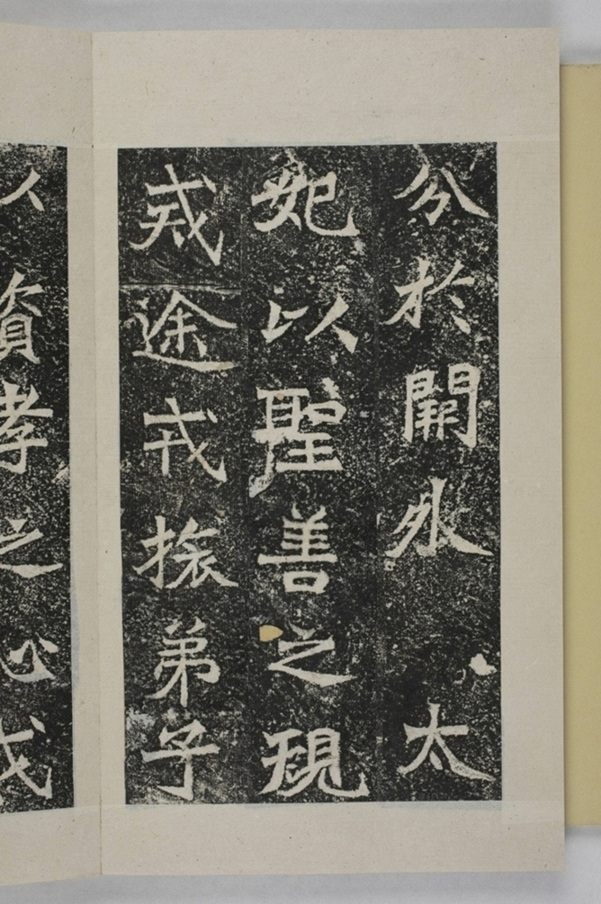 分於開外　太
妃以聖善之規
戒途戒旅弟子
以資孝之心戈